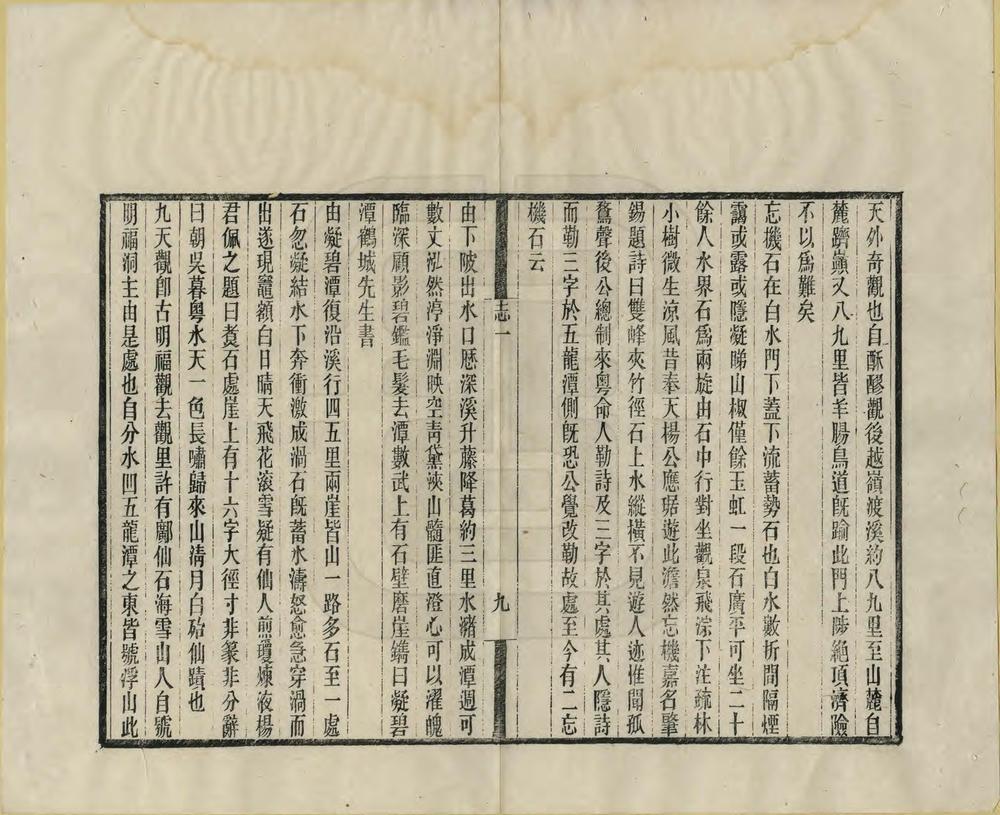 天外奇觀也自酥醪觀後越嶺渡溪約八九里至山麓自
麓躋巔又八九里皆羊腸鳥道旣踰此門上陟絶頂濟險
不以爲難矣
忘機石在白水門下蓋下流蓄勢石也白水數折間隔煙
靄或露或隱凝睇山椒僅餘玉虹一段石廣平可坐二十
餘人水界石爲兩旋由石中行對坐觀泉飛淙下注疏林
小樹微生涼風昔奉天楊公應琚遊此澹然忘機嘉名肇
錫題詩曰雙峰夾竹徑石上水縱橫不見遊人迹惟聞孤
鶩聲後公總制來粵命人勒詩及三字於其處其人隱詩
而勒三字於五龍潭側旣恐公覺改勒故處至今有二忘
機石云
志一
九
由下陂出水口歷深溪升藤降葛約三里水瀦成潭週可
數丈泓然渟淨淵映空靑黛浹山髓匪直澄心可以濯魄
臨深顧影碧鑑毛髮去潭數武上有石壁磨崖鐫曰凝碧
潭鶴城先生書
由凝碧潭復沿溪行四五里兩崖皆山一路多石至一處
石忽凝結水下奔衝激成渦石旣蓄水濤怒愈急穿渦而
出遂現竈額白日晴天飛花滚雪疑有仙人煎瓊煉液楊
君佩之題曰煑石處崖上有十六字大徑寸非篆非分辭
曰朝吳暮粵水天一色長嘯歸來山淸月白殆仙蹟也
九天觀卽古明福觀去觀里許有鄺仙石海雪山人自號
明福洞主由是處也自分水凹五龍潭之東皆號浮山此